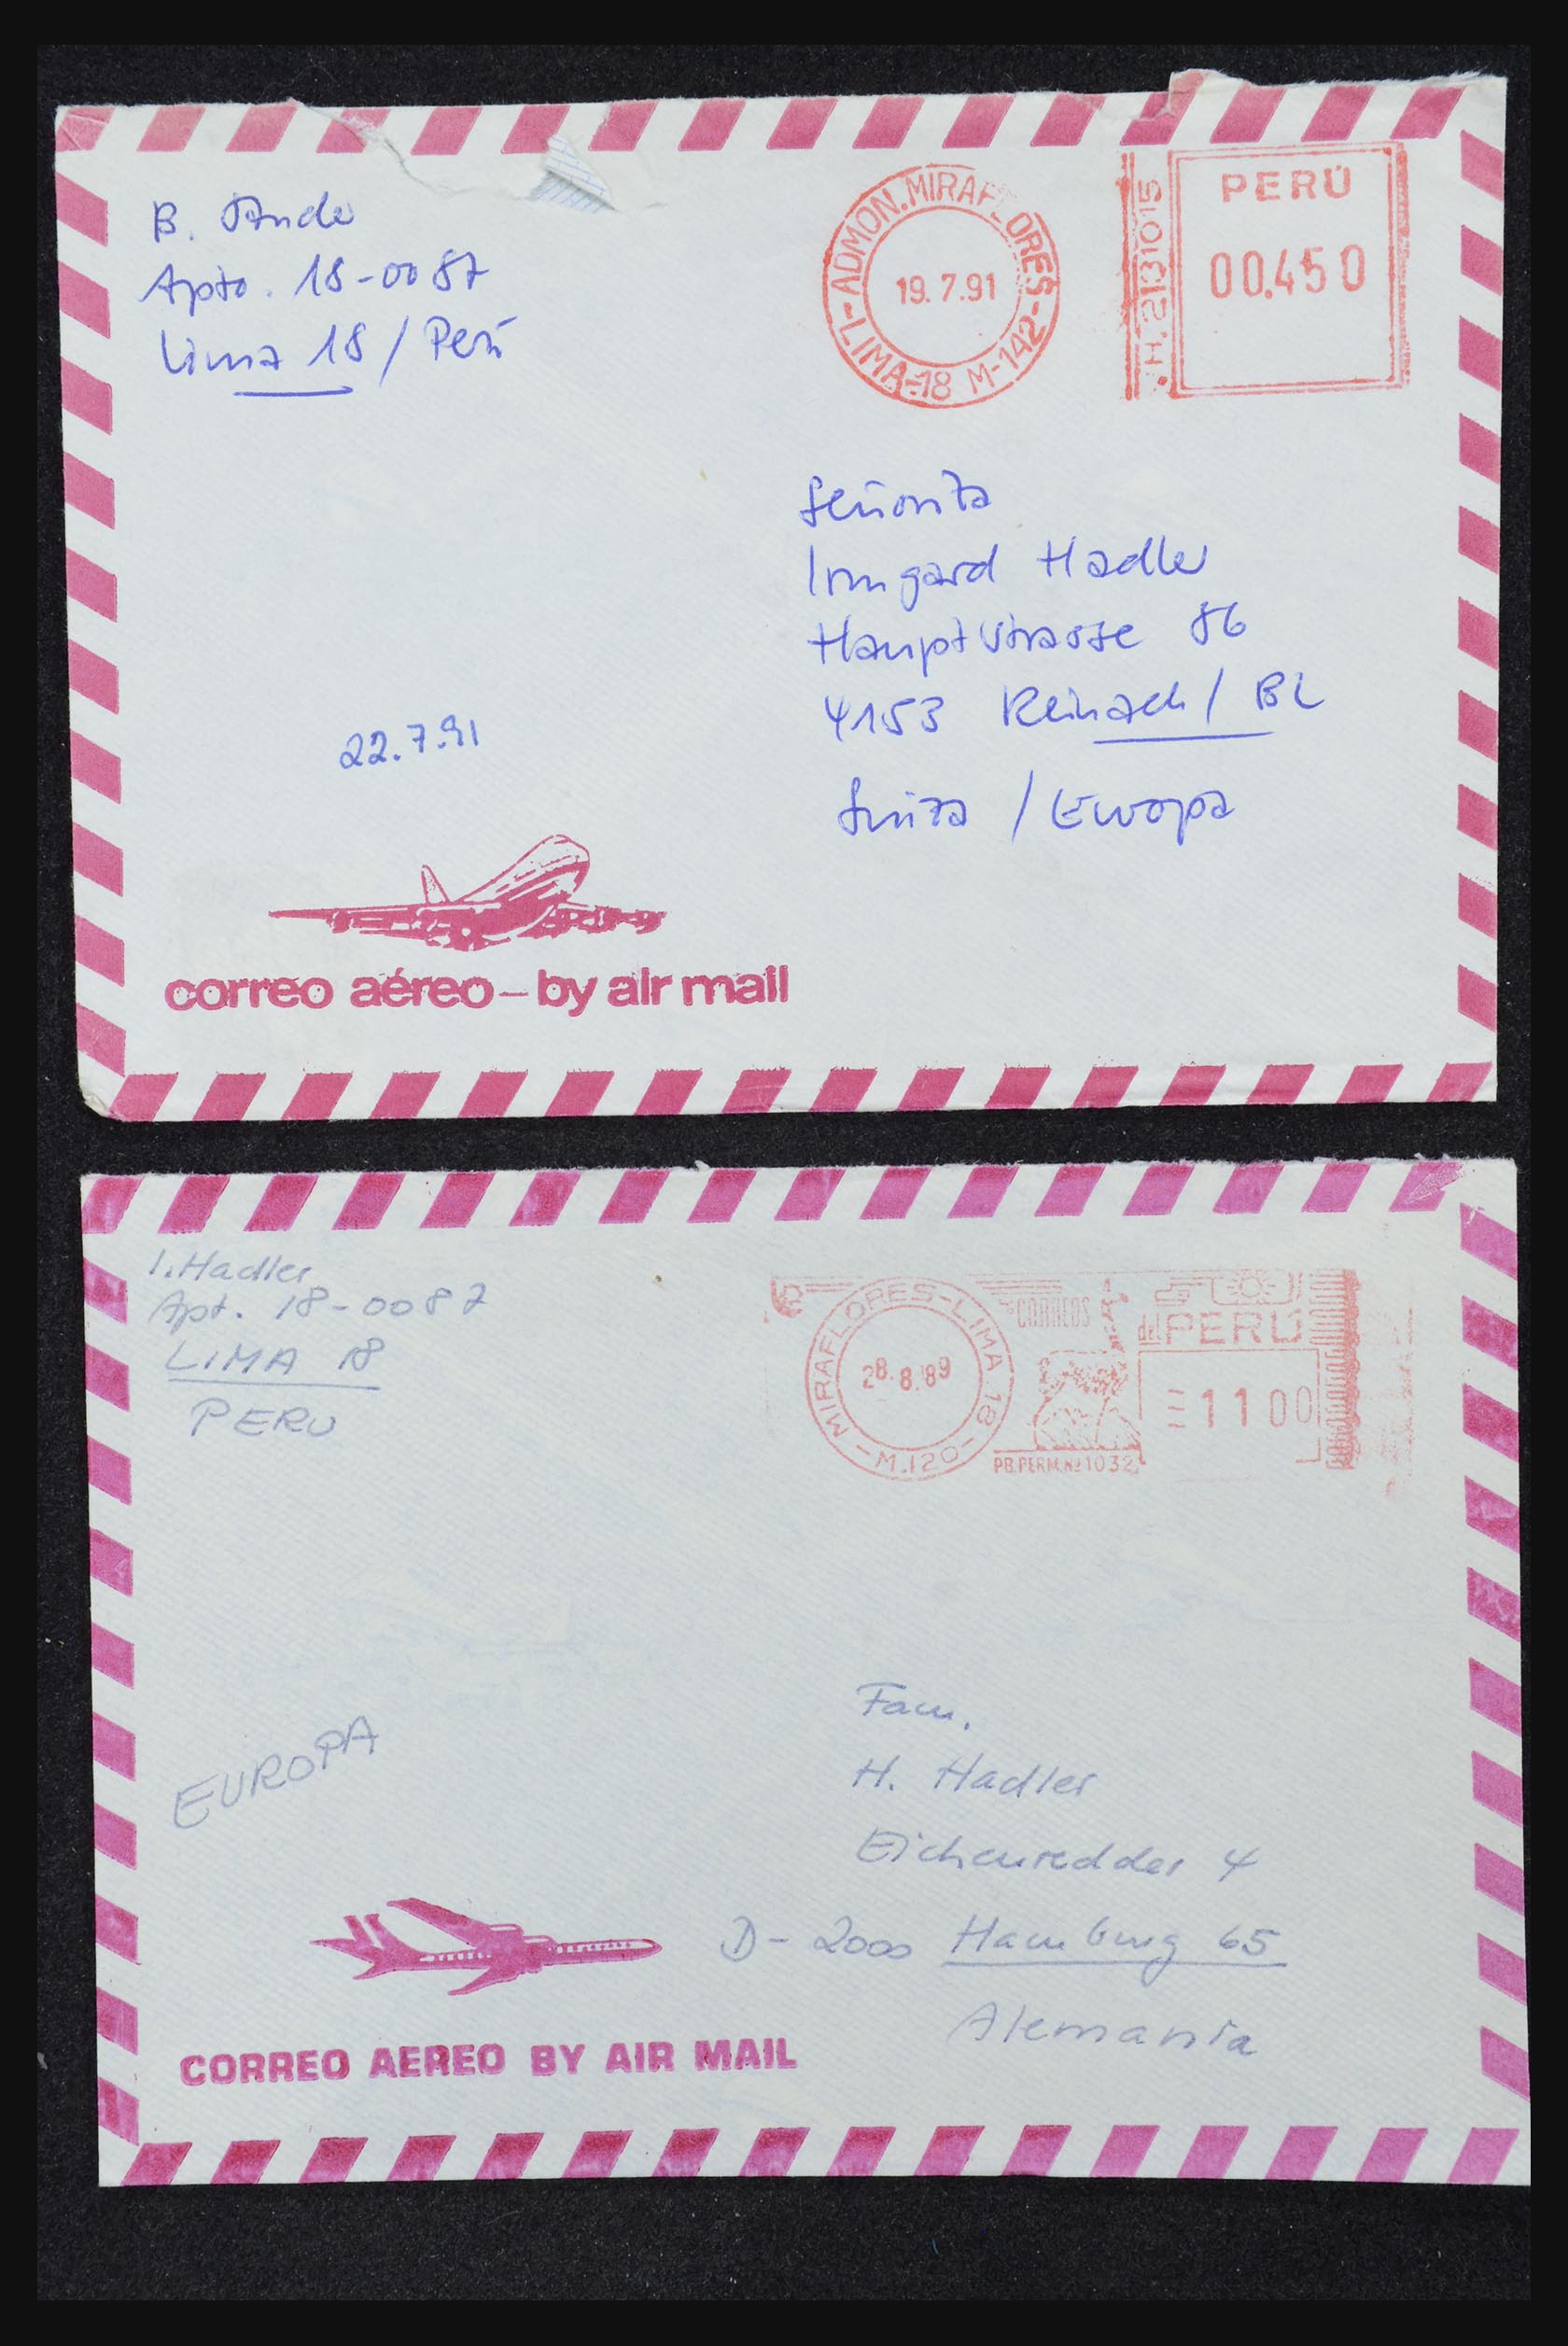 B.
Apto. 18-0087
Lima 18 / Perú
ADMON. MIRAFLORES
-LIMA-18 M-142-
19.7.91
H.2131015
PERÚ
00.450
Señorita
Irmgard Hadler
Hauptstrasse 86
4153 Reinach / BL
Suiza / Europa
22.7.91
correo aéreo - by air mail
I. Hadler
Apt. 18-0087
LIMA 18
PERU
MIRAFLORES-LIMA 18
-M.120-
28.8.89
CORREOS
del PERU
1100
PB.PERM.Nº1032
EUROPA
Fam.
H. Hadler
Eichenredder 4
D-2000 Hamburg 65
Alemania
CORREO AEREO BY AIR MAIL